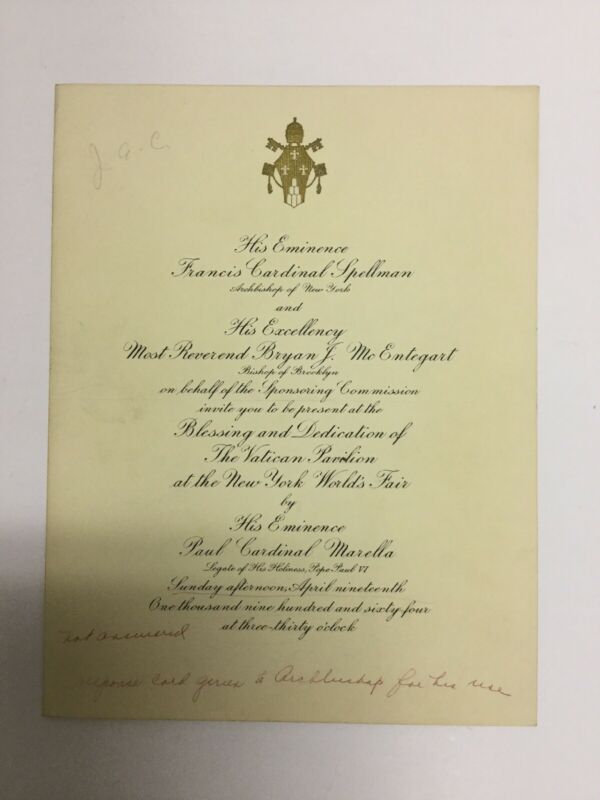 J. A. C.
His Eminence
Francis Cardinal Spellman
Archbishop of New York
and
His Excellency
Most Reverend Bryan J. McEntegart
Bishop of Brooklyn
on behalf of the Sponsoring Commission
invite you to be present at the
Blessing and Dedication of
The Vatican Pavilion
at the New York World's Fair
by
His Eminence
Paul Cardinal Marella
Legate of His Holiness, Pope Paul VI
Sunday afternoon, April nineteenth
One thousand nine hundred and sixty-four
at three-thirty o'clock
not answered
response card given to Archbishop for his use